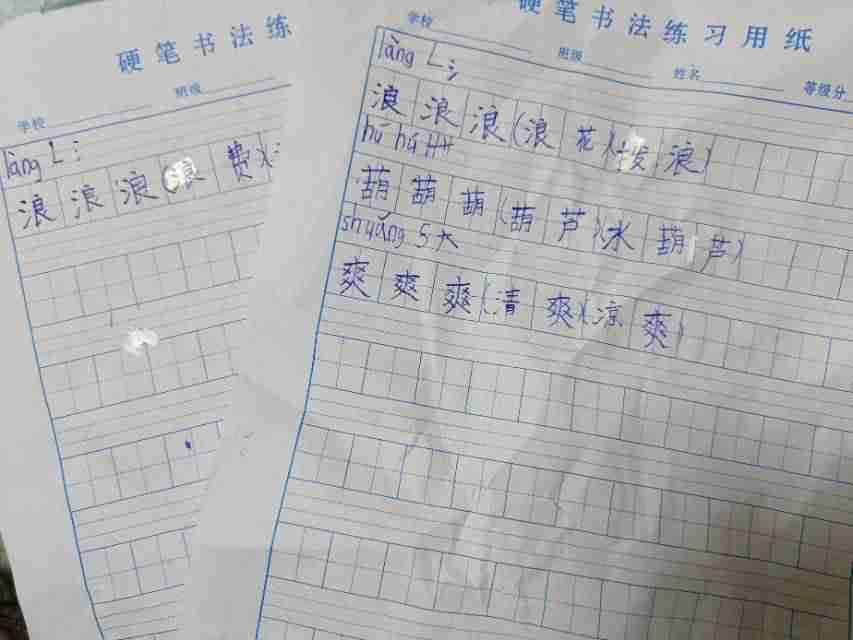 硬笔书法练
学校 班级
làng L 氵
浪 浪 浪 (浪 费)(
硬笔书法练习用纸
学校 班级 姓名 等级分
làng L 氵
浪 浪 浪 (浪 花)(拨 浪)
hú hú H 艹
葫 葫 葫 (葫 芦)(水 葫 芦)
shuǎng S 大
爽 爽 爽 (清 爽)(凉 爽)